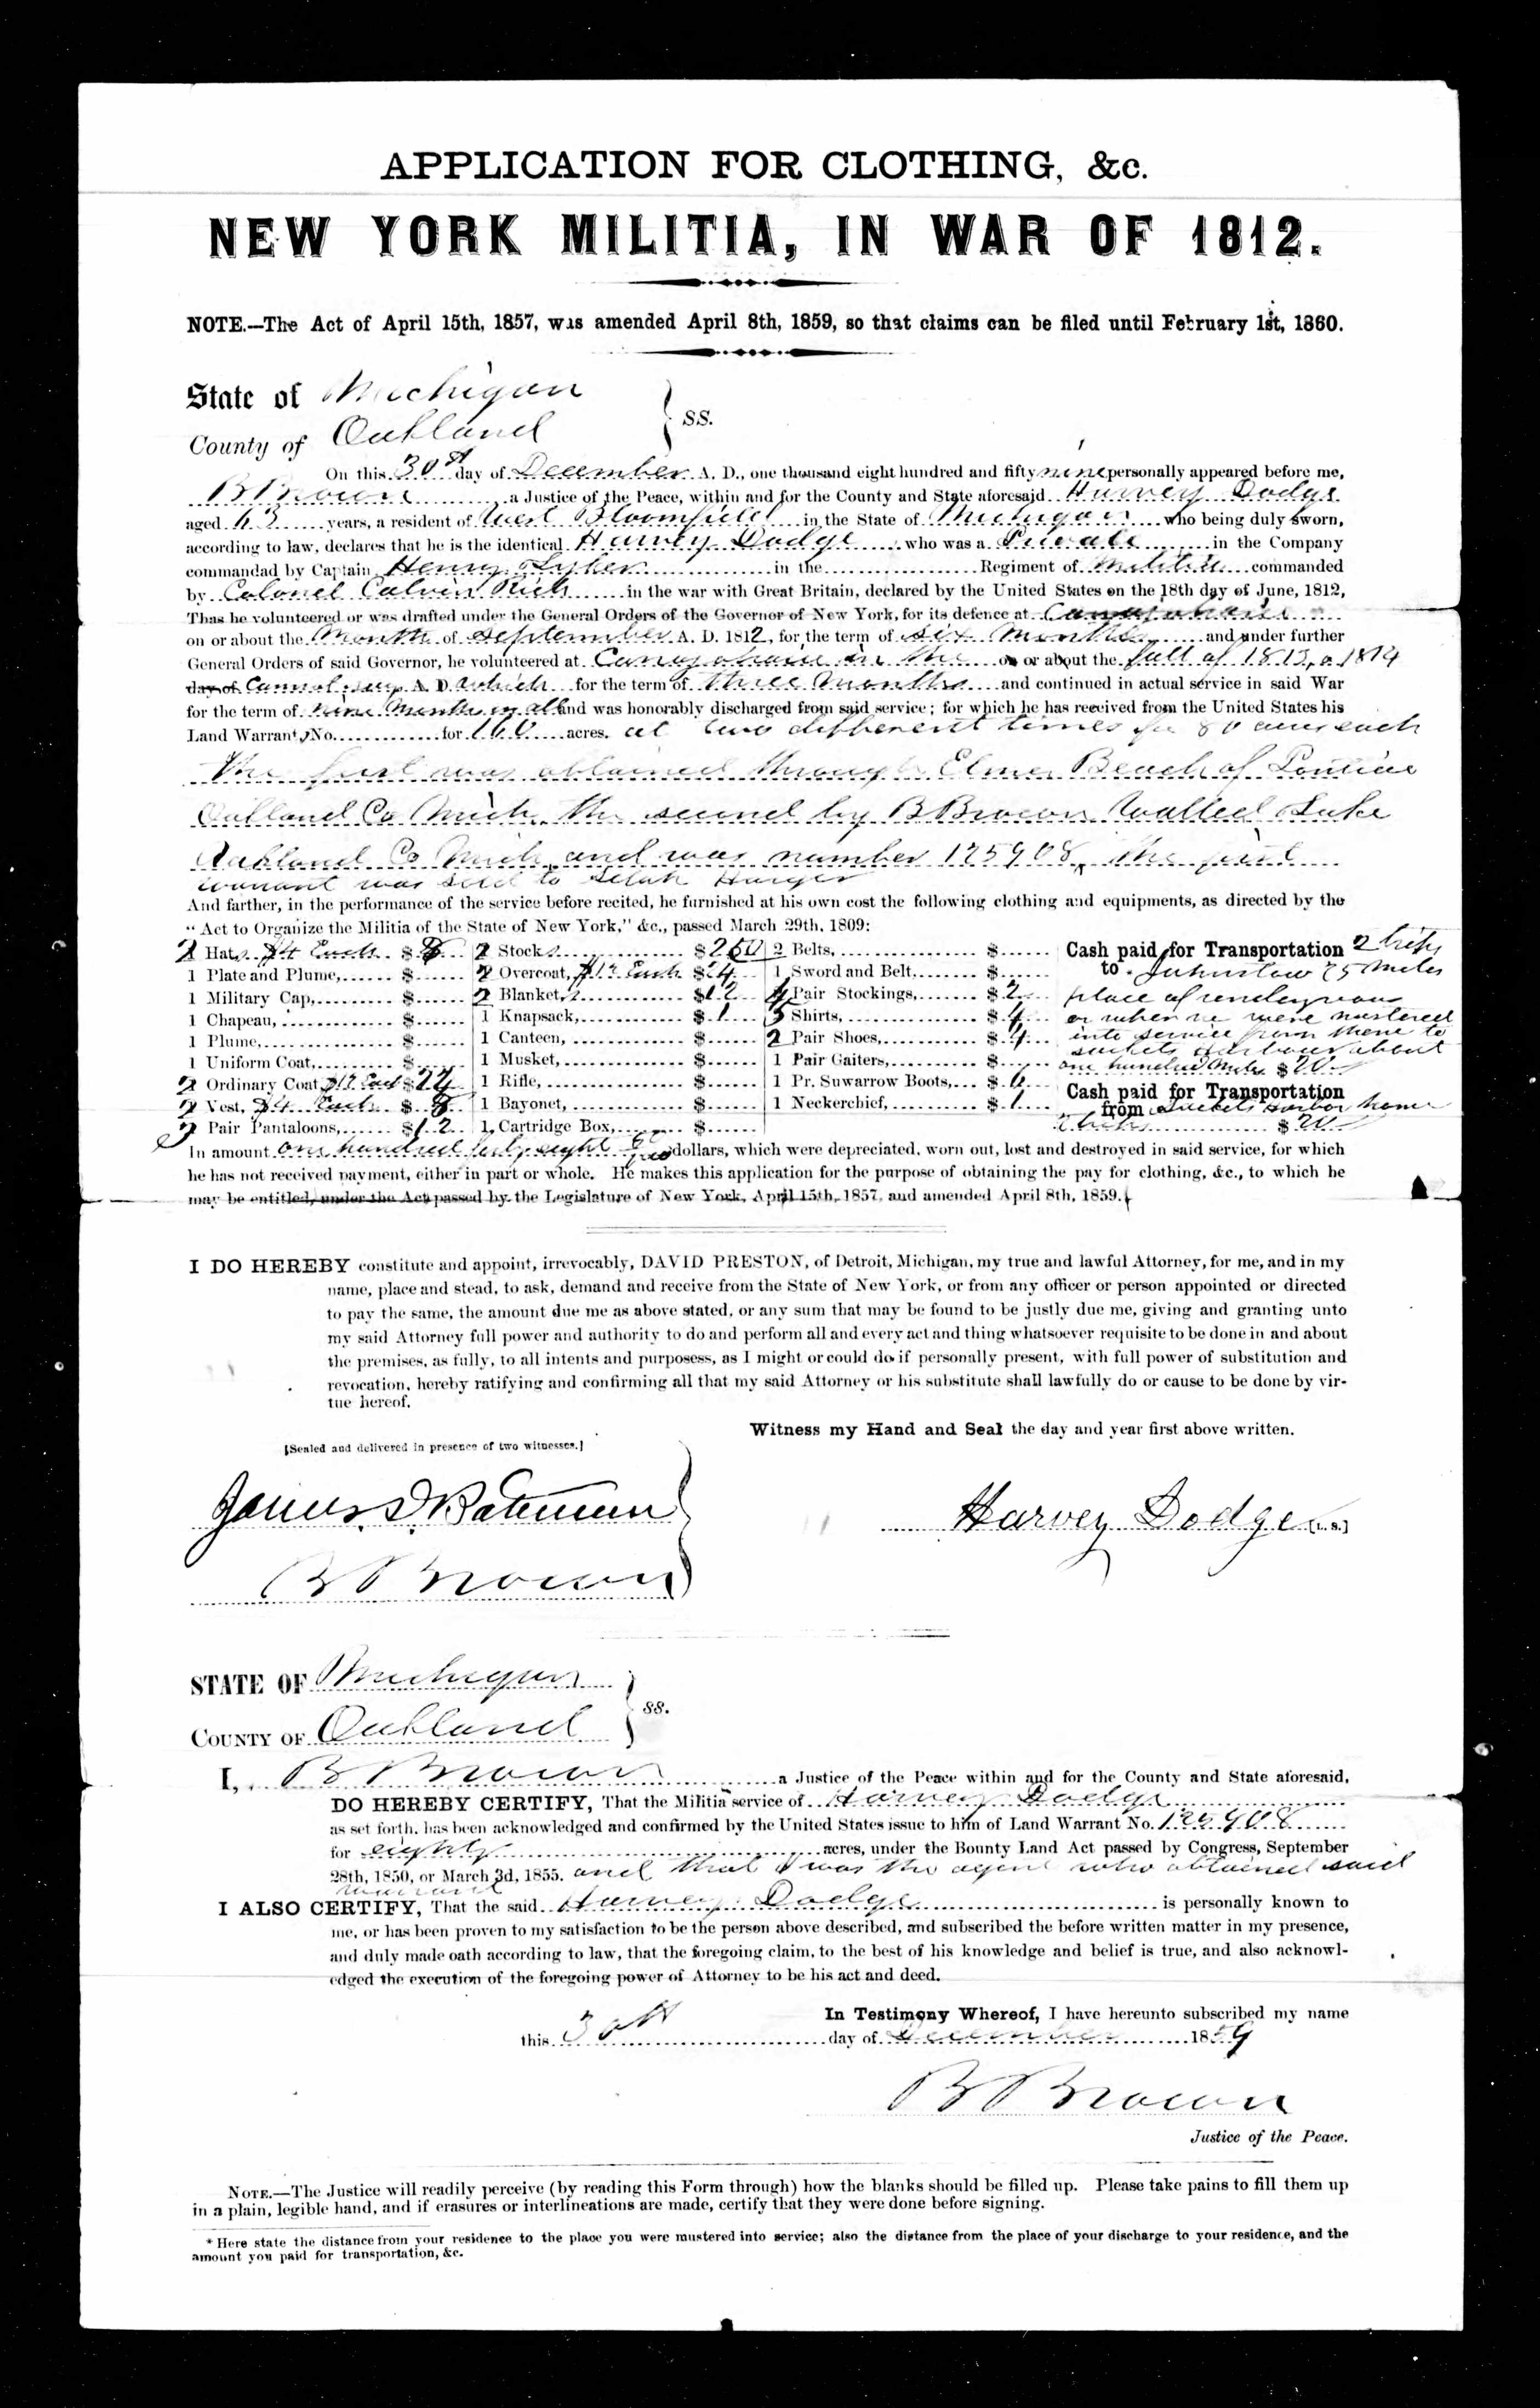 APPLICATION FOR CLOTHING, &c.
NEW YORK MILITIA, IN WAR OF 1812.
NOTE.—The Act of April 15th, 1857, was amended April 8th, 1859, so that claims can be filed until February 1st, 1860.
State of Michigan
County of Oakland } SS.
On this 30th day of December A. D., one thousand eight hundred and fifty nine personally appeared before me,
B Brown a Justice of the Peace, within and for the County and State aforesaid Harvey Dodge
aged 63 years, a resident of West Bloomfield in the State of Michigan who being duly sworn,
according to law, declares that he is the identical Harvey Dodge who was a Private in the Company
commandad by Captain Henry Lyker in the Regiment of Militia commanded
by Colonel Calvin Rich in the war with Great Britain, declared by the United States on the 18th day of June, 1812,
Thas he volunteered or was drafted under the General Orders of the Governor of New York, for its defence at Canajoharie
on or about the Month of September A. D. 1812, for the term of six Months and under further
General Orders of said Governor, he volunteered at Canajoharie in the on or about the fall of 1813, or 1814
day of Cannot say A. D. which for the term of three Months and continued in actual service in said War
for the term of nine Months in all and was honorably discharged from said service; for which he has received from the United States his
Land Warrant, No. for 160 acres. at two different times for 80 acres each
The first was obtained through Elmer Beach of Pontiac
Oakland Co Mich. the second by B Brown Walled Lake
Oakland Co Mich, and was number 125908, the first
warrant was sold to Selah Harger
And farther, in the performance of the service before recited, he furnished at his own cost the following clothing and equipments, as directed by the
"Act to Organize the Militia of the State of New York," &c., passed March 29th, 1809:
2 Hats $4 Each $8 2 Stocks $2 50 2 Belts, $ Cash paid for Transportation 2 trips
1 Plate and Plume, $ 2 Overcoat, $12 Each $24 1 Sword and Belt, $ to Johnstown 25 Miles
1 Military Cap, $ 2 Blankets $12 4 Pair Stockings, $2 place of rendezvous
1 Chapeau, $ 1 Knapsack, $1 5 Shirts, $ or when we were mustered
1 Plume, $ 1 Canteen, $ 2 Pair Shoes, $4 into service from there to
1 Uniform Coat, $ 1 Musket, $ 1 Pair Gaiters, $ Sackets Harbour about
2 Ordinary Coat $12 Each $24 1 Rifle, $ 1 Pr. Suwarrow Boots, $6 one hundred Miles $20
2 Vest, $4 Each $8 1 Bayonet, $ 1 Neckerchief, $1 Cash paid for Transportation
3 Pair Pantaloons, $12 1 Cartridge Box, $ from Sackets Harbor home
2 trips $20
In amount one hundred forty eight 50/100 dollars, which were depreciated, worn out, lost and destroyed in said service, for which
he has not received payment, either in part or whole. He makes this application for the purpose of obtaining the pay for clothing, &c., to which he
may be entitled, under the Act passed by the Legislature of New York, April 15th, 1857, and amended April 8th, 1859.
I DO HEREBY constitute and appoint, irrevocably, DAVID PRESTON, of Detroit, Michigan, my true and lawful Attorney, for me, and in my
name, place and stead, to ask, demand and receive from the State of New York, or from any officer or person appointed or directed
to pay the same, the amount due me as above stated, or any sum that may be found to be justly due me, giving and granting unto
my said Attorney full power and authority to do and perform all and every act and thing whatsoever requisite to be done in and about
the premises, as fully, to all intents and purposess, as I might or could do if personally present, with full power of substitution and
revocation, hereby ratifying and confirming all that my said Attorney or his substitute shall lawfully do or cause to be done by vir-
tue hereof.
Witness my Hand and Seal the day and year first above written.
[Sealed and delivered in presence of two witnesses.]
James D Bateman
Harvey Dodge [L. S.]
B Brown
STATE OF Michigan
COUNTY OF Oakland } ss.
I, B Brown a Justice of the Peace within and for the County and State aforesaid,
DO HEREBY CERTIFY, That the Militia service of Harvey Dodge
as set forth, has been acknowledged and confirmed by the United States issue to him of Land Warrant No. 125908
for eighty acres, under the Bounty Land Act passed by Congress, September
28th, 1850, or March 3d, 1855. and that I was the agent who obtained said
warrant
I ALSO CERTIFY, That the said Harvey Dodge is personally known to
me, or has been proven to my satisfaction to be the person above described, and subscribed the before written matter in my presence,
and duly made oath according to law, that the foregoing claim, to the best of his knowledge and belief is true, and also acknowl-
edged the execution of the foregoing power of Attorney to be his act and deed.
In Testimony Whereof, I have hereunto subscribed my name
this 30th day of December 1859
B Brown
Justice of the Peace.
NOTE.—The Justice will readily perceive (by reading this Form through) how the blanks should be filled up. Please take pains to fill them up
in a plain, legible hand, and if erasures or interlineations are made, certify that they were done before signing.
* Here state the distance from your residence to the place you were mustered into service; also the distance from the place of your discharge to your residence, and the
amount you paid for transportation, &c.